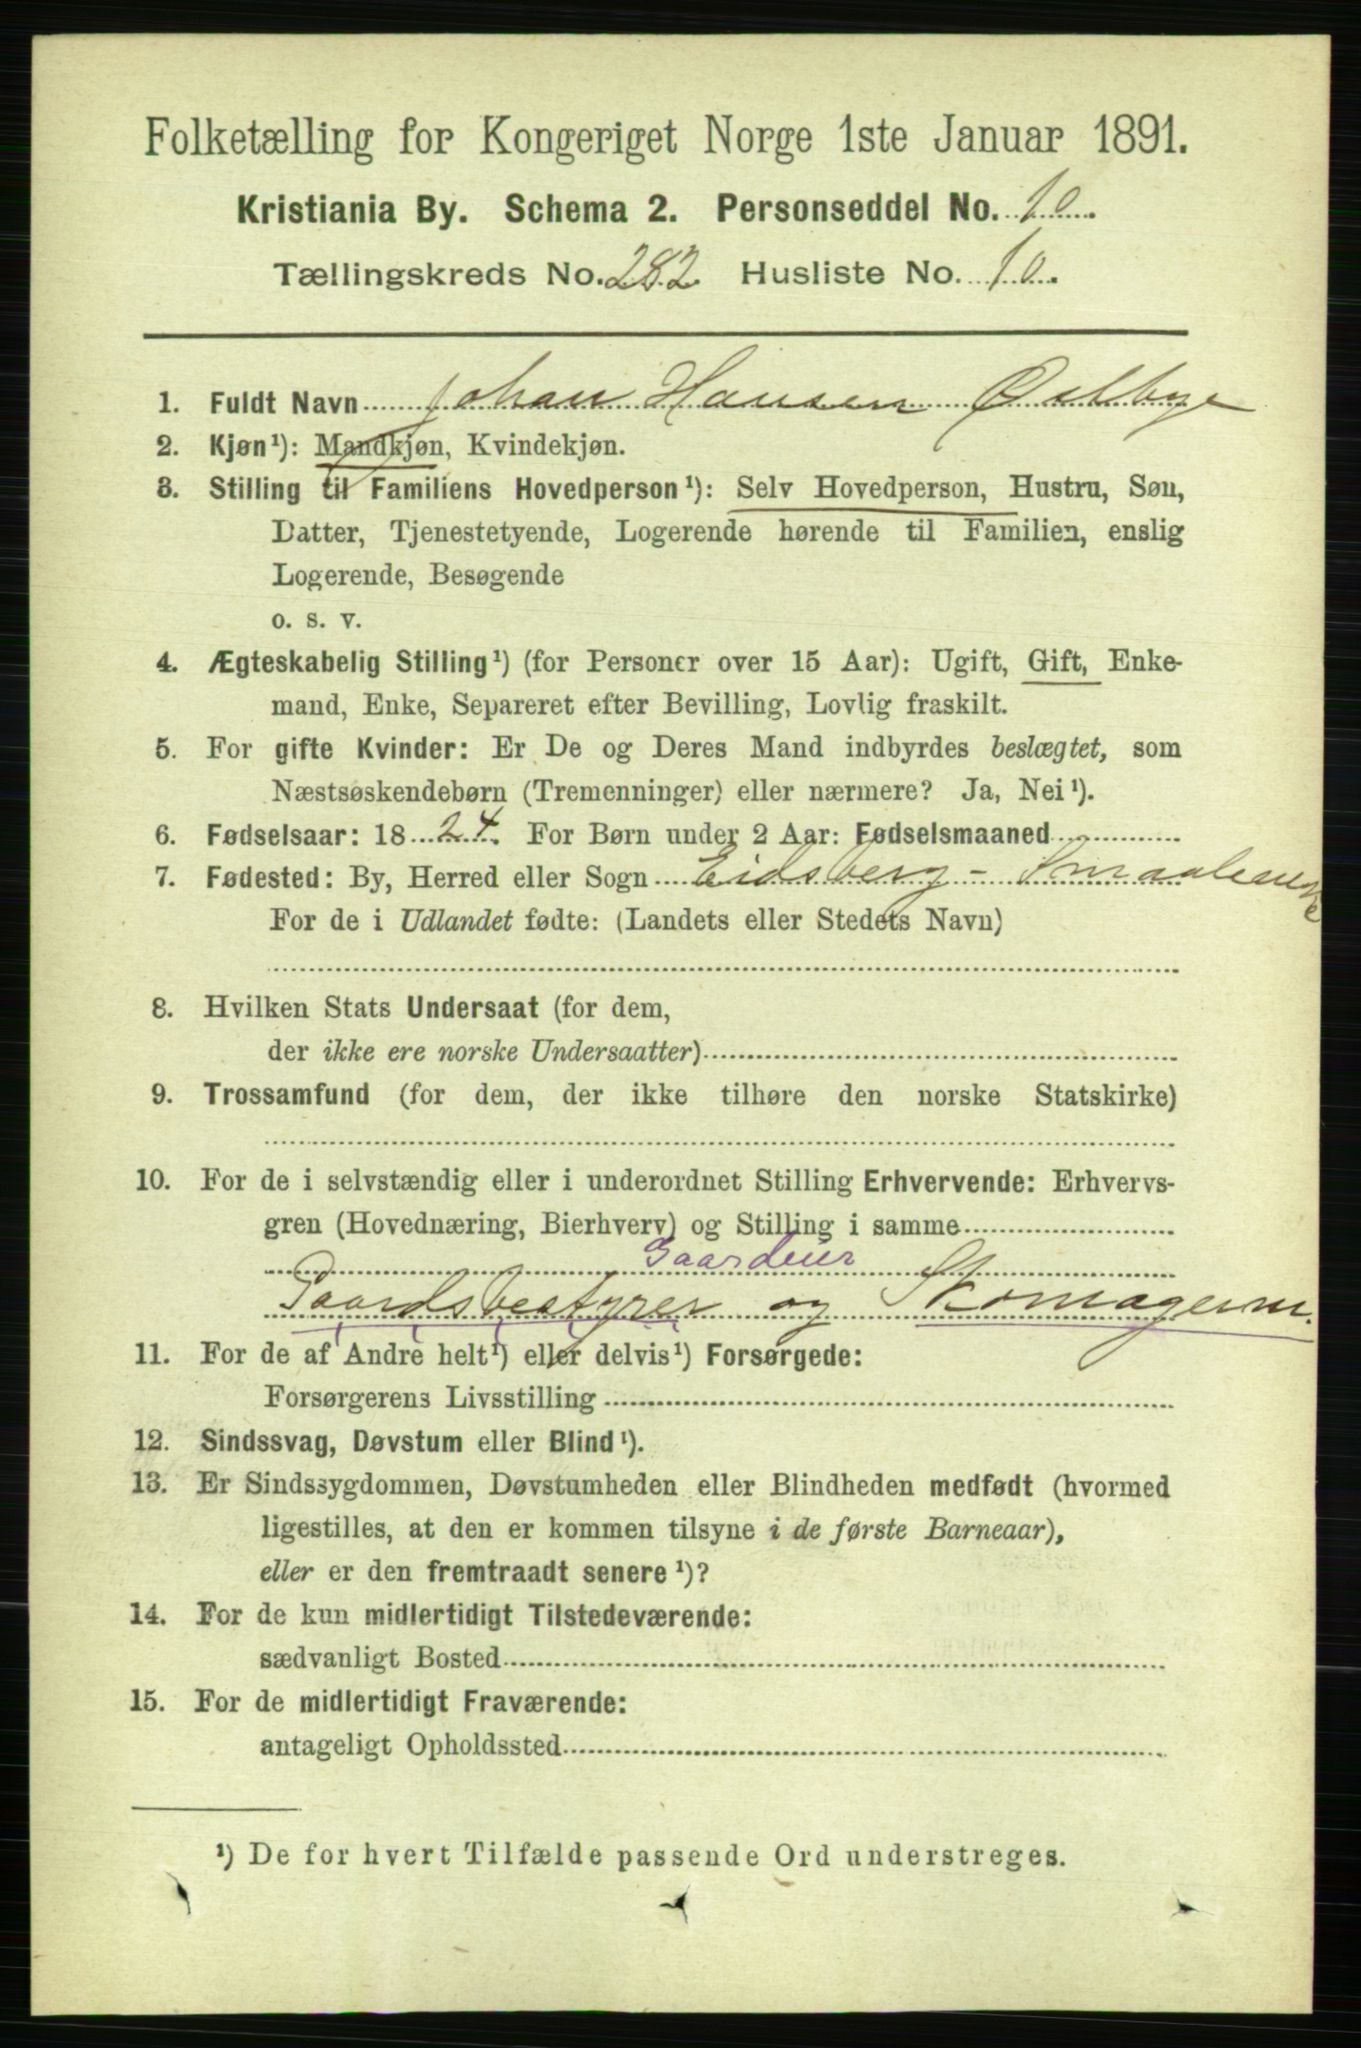 Folketælling for Kongeriget Norge 1ste Januar 1891.
Kristiania By. Schema 2. Personseddel No. 10.
Tællingskreds No. 282 Husliste No. 10.
1. Fuldt Navn Johan Hansen Østbye
2. Kjøn¹): Mandkjøn, Kvindekjøn.
3. Stilling til Familiens Hovedperson¹): Selv Hovedperson, Hustru, Søn,
Datter, Tjenestetyende, Logerende hørende til Familien, enslig
Logerende, Besøgende
o. s. v.
4. Ægteskabelig Stilling¹) (for Personer over 15 Aar): Ugift, Gift, Enke-
mand, Enke, Separeret efter Bevilling, Lovlig fraskilt.
5. For gifte Kvinder: Er De og Deres Mand indbyrdes beslægtet, som
Næstsøskendebørn (Tremenninger) eller nærmere? Ja, Nei¹).
6. Fødselsaar: 1824. For Børn under 2 Aar: Fødselsmaaned
7. Fødested: By, Herred eller Sogn Eidsberg - Smaalenene
For de i Udlandet fødte: (Landets eller Stedets Navn)
8. Hvilken Stats Undersaat (for dem,
der ikke ere norske Undersaatter)
9. Trossamfund (for dem, der ikke tilhøre den norske Statskirke)
10. For de i selvstændig eller i underordnet Stilling Erhvervende: Erhvervs-
gren (Hovednæring, Bierhverv) og Stilling i samme
Gaardeier
Gaardsbestyrer og Skomagerm.
11. For de af Andre helt¹) eller delvis¹) Forsørgede:
Forsørgerens Livsstilling
12. Sindssvag, Døvstum eller Blind¹).
13. Er Sindssygdommen, Døvstumheden eller Blindheden medfødt (hvormed
ligestilles, at den er kommen tilsyne i de første Barneaar),
eller er den fremtraadt senere¹)?
14. For de kun midlertidigt Tilstedeværende:
sædvanligt Bosted
15. For de midlertidigt Fraværende:
antageligt Opholdssted
¹) De for hvert Tilfælde passende Ord understreges.